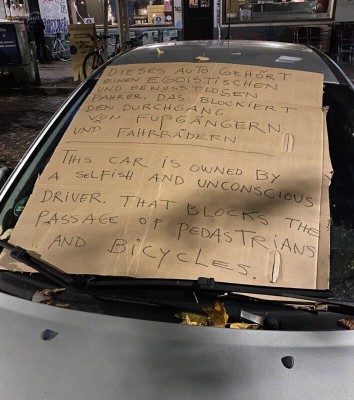 DIESES AUTO GEHÖRT
EINEN EGOISTISCHEN
UND BEWUSSTLOSEN
FAHRER. DAS BLOCKIERT
DEN DURCHGANG
VON FUPGÄNGERN
UND FAHRRÄDERN
THIS CAR IS OWNED BY
A SELFISH AND UNCONSCIOUS
DRIVER. THAT BLOCKS THE
PASSAGE OF PEDASTRIANS
AND BICYCLES.